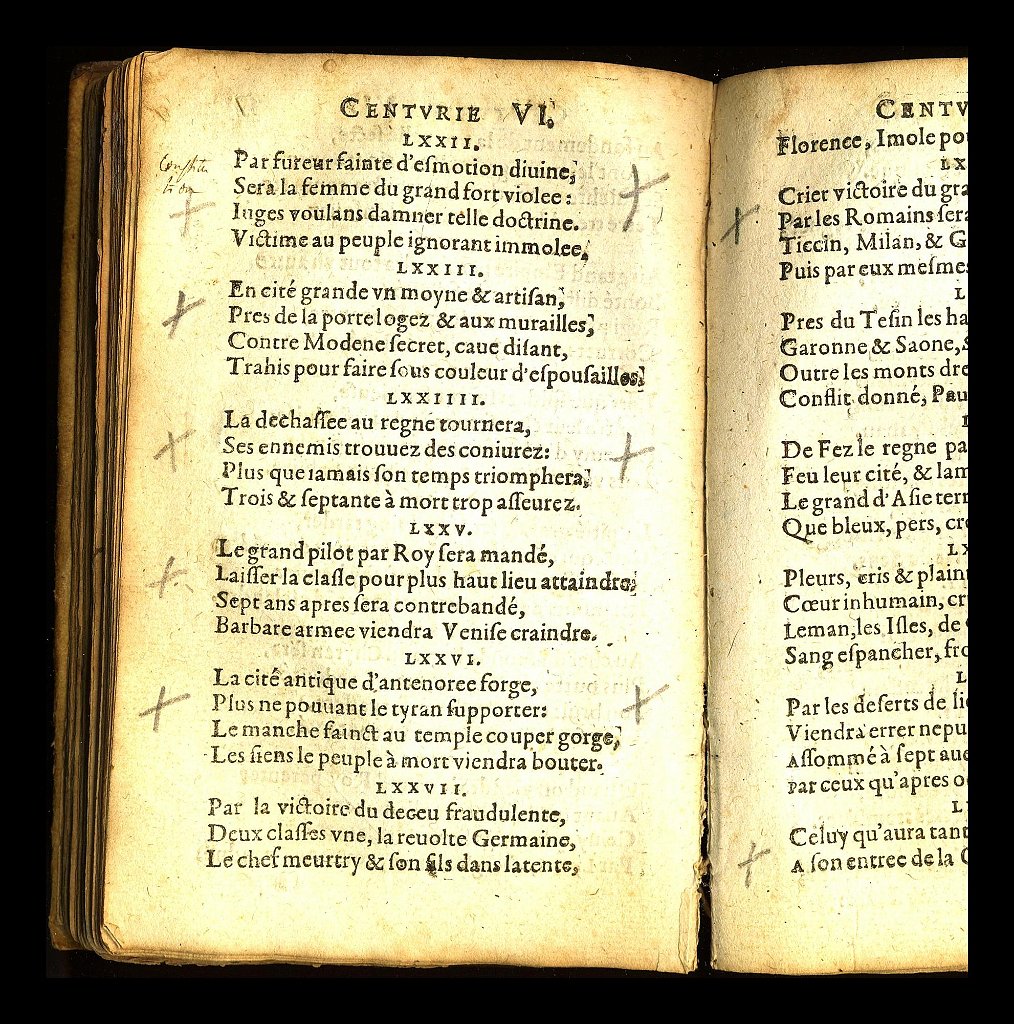 CENTVRIE VI.
LXXII.
Par fureur fainte d'eſmotion diuine,
Sera la femme du grand fort violee:
Iuges voulans damner telle doctrine.
Victime au peuple ignorant immolee,
LXXIII.
En cité grande vn moyne & artiſan,
Pres de la porte logez & aux murailles,
Contre Modene ſecret, caue diſant,
Trahis pour faire ſous couleur d'eſpouſailles,
LXXIIII.
La dechaſſee au regne tournera,
Ses ennemis trouuez des coniurez:
Plus que iamais ſon temps triomphera,
Trois & ſeptante à mort trop aſſeurez.
LXXV.
Le grand pilot par Roy ſera mandé,
Laiſſer la claſſe pour plus haut lieu attaindre,
Sept ans apres ſera contrebandé,
Barbare armee viendra Veniſe craindre.
LXXVI.
La cité antique d'antenoree forge,
Plus ne pouuant le tyran ſupporter:
Le manche fainct au temple couper gorge,
Les ſiens le peuple à mort viendra bouter.
LXXVII.
Par la victoire du deceu fraudulente,
Deux claſſes vne, la reuolte Germaine,
Le chef meurtry & ſon fils dans latente,
CENTV
Florence, Imole po
LX
Crier victoire du gra
Par les Romains ſera
Ticcin, Milan, & G
Puis par eux meſmes
L
Pres du Teſin les ha
Garonne & Saone, &
Outre les monts dre
Conflit donné, Pau
De Fez le regne pa
Feu leur cité, & lam
Le grand d'Aſie terr
Que bleux, pers, cre
LX
Pleurs, cris & plaint
Cœur inhumain, cr
Leman, les Iſles, de
Sang eſpancher, fro
L
Par les deſerts de lie
Viendra errer nepu
Aſſommé à ſept aue
Par ceux qu'apres o
L
Celuy qu'aura tant
A ſon entree de la C